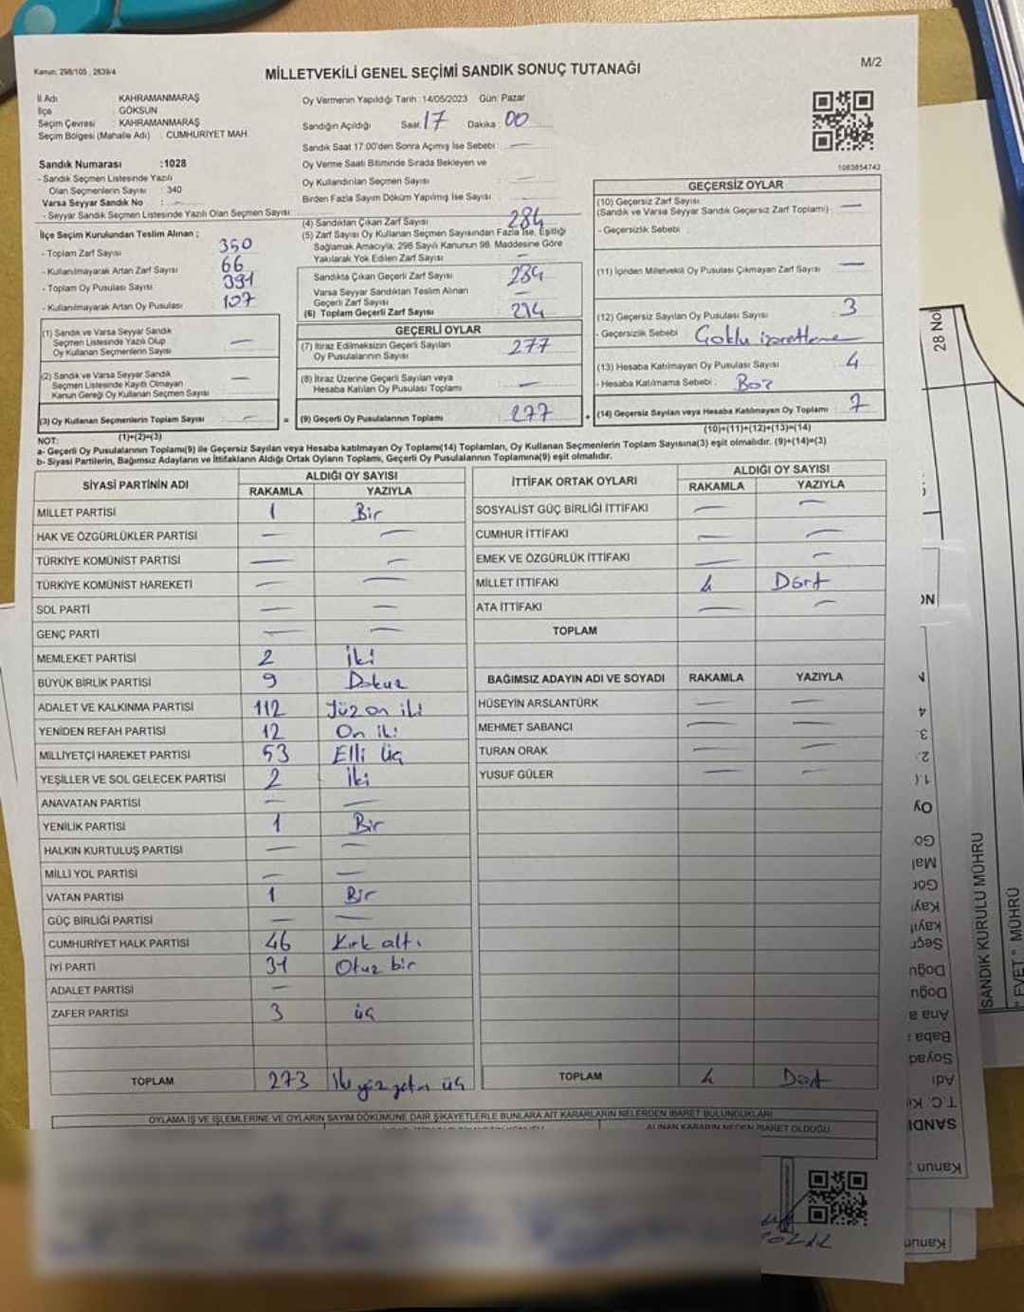 Kanun: 298/105 , 2839/4
MİLLETVEKİLİ GENEL SEÇİMİ SANDIK SONUÇ TUTANAĞI
M/2
İl Adı KAHRAMANMARAŞ
İlçe GÖKSUN
Seçim Çevresi : KAHRAMANMARAŞ
Seçim Bölgesi (Mahalle Adı) : CUMHURIYET MAH.
Sandık Numarası :1028
- Sandık Seçmen Listesinde Yazılı
Olan Seçmenlerin Sayısı : 340
Varsa Seyyar Sandık No :
- Seyyar Sandık Seçmen Listesinde Yazılı Olan Seçmen Sayısı:
İlçe Seçim Kurulundan Teslim Alınan ;
- Toplam Zarf Sayısı 350
- Kullanılmayarak Artan Zarf Sayısı 66
- Toplam Oy Pusulası Sayısı 391
- Kullanılmayarak Artan Oy Pusulası 107
(1) Sandık ve Varsa Seyyar Sandık
Seçmen Listesinde Yazılı Olup
Oy Kullanan Seçmenlerin Sayısı —
(2) Sandık ve Varsa Seyyar Sandık
Seçmen Listesinde Kayıtlı Olmayan
Kanun Gereği Oy Kullanan Seçmen Sayısı —
(3) Oy Kullanan Seçmenlerin Toplam Sayısı —
(1)+(2)=(3)
Oy Vermenin Yapıldığı Tarih :14/05/2023 Gün: Pazar
Sandığın Açıldığı Saat: 17 Dakika : 00
Sandık Saat 17.00'den Sonra Açılmış İse Sebebi : —
Oy Verme Saati Bitiminde Sırada Bekleyen ve
Oy Kullandırılan Seçmen Sayısı —
Birden Fazla Sayım Döküm Yapılmış İse Sayısı —
(4) Sandıktan Çıkan Zarf Sayısı 284
(5) Zarf Sayısı Oy Kullanan Seçmen Sayısından Fazla İse, Eşitliği
Sağlamak Amacıyla; 298 Sayılı Kanunun 98. Maddesine Göre
Yakılarak Yok Edilen Zarf Sayısı —
Sandıkta Çıkan Geçerli Zarf Sayısı 284
Varsa Seyyar Sandıktan Teslim Alınan
Geçerli Zarf Sayısı —
(6) Toplam Geçerli Zarf Sayısı 284
GEÇERLİ OYLAR
(7) İtiraz Edilmeksizin Geçerli Sayılan
Oy Pusulalarının Sayısı 277
(8) İtiraz Üzerine Geçerli Sayılan veya
Hesaba Katılan Oy Pusulası Toplamı —
= (9) Geçerli Oy Pusulalarının Toplamı 277
1083854743
GEÇERSİZ OYLAR
(10) Geçersiz Zarf Sayısı
(Sandık ve Varsa Seyyar Sandık Geçersiz Zarf Toplamı) : —
- Geçersizlik Sebebi :
(11) İçinden Milletvekili Oy Pusulası Çıkmayan Zarf Sayısı —
(12) Geçersiz Sayılan Oy Pusulası Sayısı : 3
- Geçersizlik Sebebi Çoklu işaretleme
(13) Hesaba Katılmayan Oy Pusulası Sayısı : 4
- Hesaba Katılmama Sebebi : Boş
+ (14) Geçersiz Sayılan veya Hesaba Katılmayan Oy Toplamı 7
(10)+(11)+(12)+(13)=(14)
NOT:
a- Geçerli Oy Pusulalarının Toplamı(9) ile Geçersiz Sayılan veya Hesaba katılmayan Oy Toplamı(14) Toplamları, Oy Kullanan Seçmenlerin Toplam Sayısına(3) eşit olmalıdır. (9)+(14)=(3)
b- Siyasi Partilerin, Bağımsız Adayların ve İttifakların Aldığı Ortak Oyların Toplamı, Geçerli Oy Pusulalarının Toplamına(9) eşit olmalıdır.
SİYASİ PARTİNİN ADI ALDIĞI OY SAYISI
RAKAMLA YAZIYLA
MİLLET PARTİSİ 1 Bir
HAK VE ÖZGÜRLÜKLER PARTİSİ — —
TÜRKİYE KOMÜNİST PARTİSİ — —
TÜRKİYE KOMÜNİST HAREKETİ — —
SOL PARTİ — —
GENÇ PARTİ — —
MEMLEKET PARTİSİ 2 İki
BÜYÜK BİRLİK PARTİSİ 9 Dokuz
ADALET VE KALKINMA PARTİSİ 112 Yüz on iki
YENİDEN REFAH PARTİSİ 12 On iki
MİLLİYETÇİ HAREKET PARTİSİ 53 Elli üç
YEŞİLLER VE SOL GELECEK PARTİSİ 2 İki
ANAVATAN PARTİSİ — —
YENİLİK PARTİSİ 1 Bir
HALKIN KURTULUŞ PARTİSİ — —
MİLLİ YOL PARTİSİ — —
VATAN PARTİSİ 1 Bir
GÜÇ BİRLİĞİ PARTİSİ — —
CUMHURİYET HALK PARTİSİ 46 Kırk altı
İYİ PARTİ 31 Otuz bir
ADALET PARTİSİ —
ZAFER PARTİSİ 3 üç
TOPLAM 273 İki yüz yetmiş üç
İTTİFAK ORTAK OYLARI ALDIĞI OY SAYISI
RAKAMLA YAZIYLA
SOSYALİST GÜÇ BİRLİĞİ İTTİFAKI — —
CUMHUR İTTİFAKI — —
EMEK VE ÖZGÜRLÜK İTTİFAKI — —
MİLLET İTTİFAKI 4 Dört
ATA İTTİFAKI — —
TOPLAM
BAĞIMSIZ ADAYIN ADI VE SOYADI RAKAMLA YAZIYLA
HÜSEYİN ARSLANTÜRK — —
MEHMET SABANCI — —
TURAN ORAK — —
YUSUF GÜLER — —
TOPLAM 4 Dört
OYLAMA İŞ VE İŞLEMLERİNE VE OYLARIN SAYIM DÖKÜMÜNE DAİR ŞİKAYETLERLE BUNLARA AİT KARARLARIN NELERDEN İBARET BULUNDUKLARI
ALINAN KARARIN NEDEN İBARET OLDUĞU
28 No
SANDIK KURULU MÜHRÜ
" EVET " MÜHRÜ
Oy
Mal
Gör
Kayı
Kayıt
Seçr
Doğu
Doğu
Ana a
Baba :
Soyad
Adı
T.C. Ki
SANDI
Kanun :
Kanun